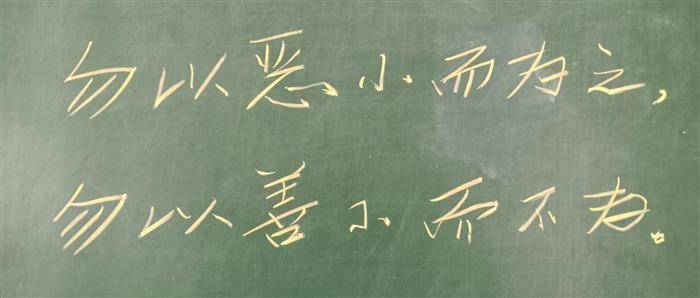 勿以恶小而为之,
勿以善小而不为。